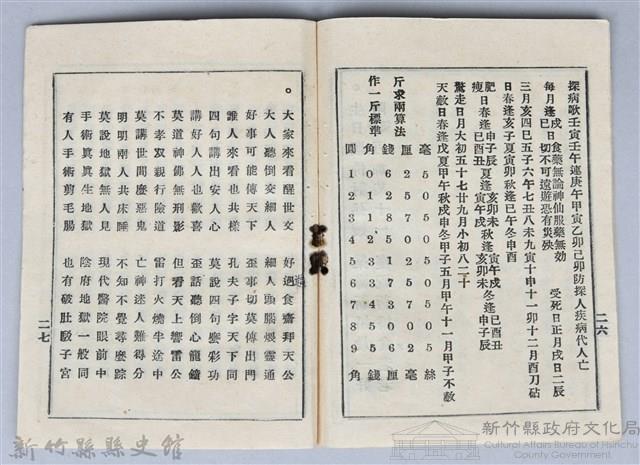 探病歌壬寅壬午連庚午甲寅乙卯己卯防探人疾病代人亡
每月逢戌日食藥無論神仙服藥無効
巳切不可遠遊恐有災殃
受死日正月戌日二辰
三月亥四巳五子六午七丑八未九寅十申十一卯十二月酉刀砧
日春逢亥子夏寅卯秋逢巳午冬申酉
肥日春逢申子辰夏逢亥卯未秋逢寅午戌冬逢巳酉丑
瘦日春逢巳酉丑夏逢寅午戌秋逢亥卯未冬逢申子辰
驚走日月大初五十七廿九月小初八二十
天赦日春逢戊寅夏甲午秋戊申冬甲子五月甲午十一月甲子不赦
斤求兩算法
作一斤標準
毫 5 0 5 0 5 0 5 0 5 絲
厘 2 5 7 0 2 5 7 0 2
錢 6 2 8 5 1 7 3 0 6 厘
角 0 1 1 2 3 3 4 5 5 錢
圓 1 2 3 4 5 6 7 8 9 角
二六
。
大家來看醒世文 好過食齋拜天公
大人聽倒交細人 細人頭腦煨靈通
好事可能傳天下 歪事切莫傳出門
誰人來看也共樣 孔夫子字天下同
四句講出安人心 莫說四句變彩功
講好人人也歡喜 歪話聽倒心龍鎗
莫道神佛無刑影 但看天上響雷公
不孝双親行險道 雷打火燒半途中
莫講世間麼惡鬼 亡神迷人難得分
明明兩人共床睡 不知不覺尋麼踪
莫說地獄無人見 現代醫院眼前中
手術真真生地獄 陰府地獄一般同
有人手術剪毛腸 也有破肚駁子宮
二七
新竹縣縣史館
新竹縣政府文化局
Cultural Affairs Bureau of Hsinchu
County Government.